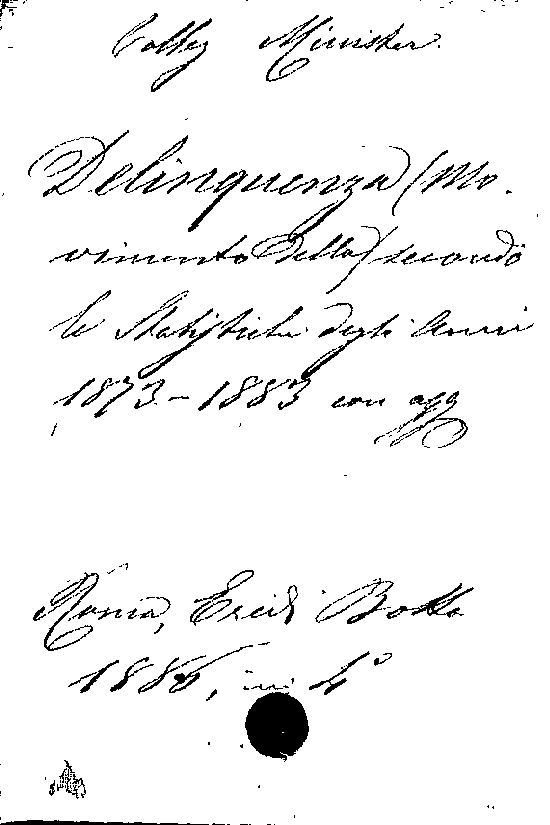 Collez Minister.
Delinquenza (Mo-
vimento della) secondo
le Statistiche degli Anni
1873-1883 con agg
Roma, Eredi Botta
1886, in 4°